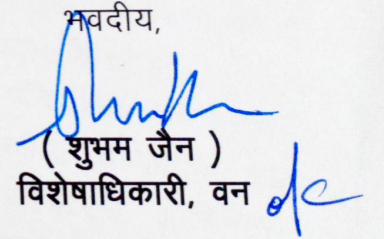 भवदीय,
( शुभम जैन )
विशेषाधिकारी, वन